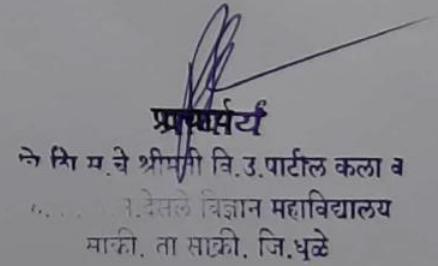 प्राचार्य
शि म.चे श्रीमती वि.उ.पाटील कला व
देसले विज्ञान महाविद्यालय
साक्री. ता साक्री. जि.धुळे